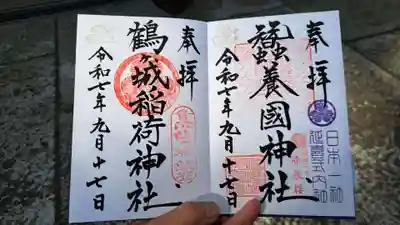 奉拝
日本一社
延喜式内社
蠶養國神社
令和七年九月十七日
奉拝
鶴ヶ城稲荷神社
令和七年九月十七日